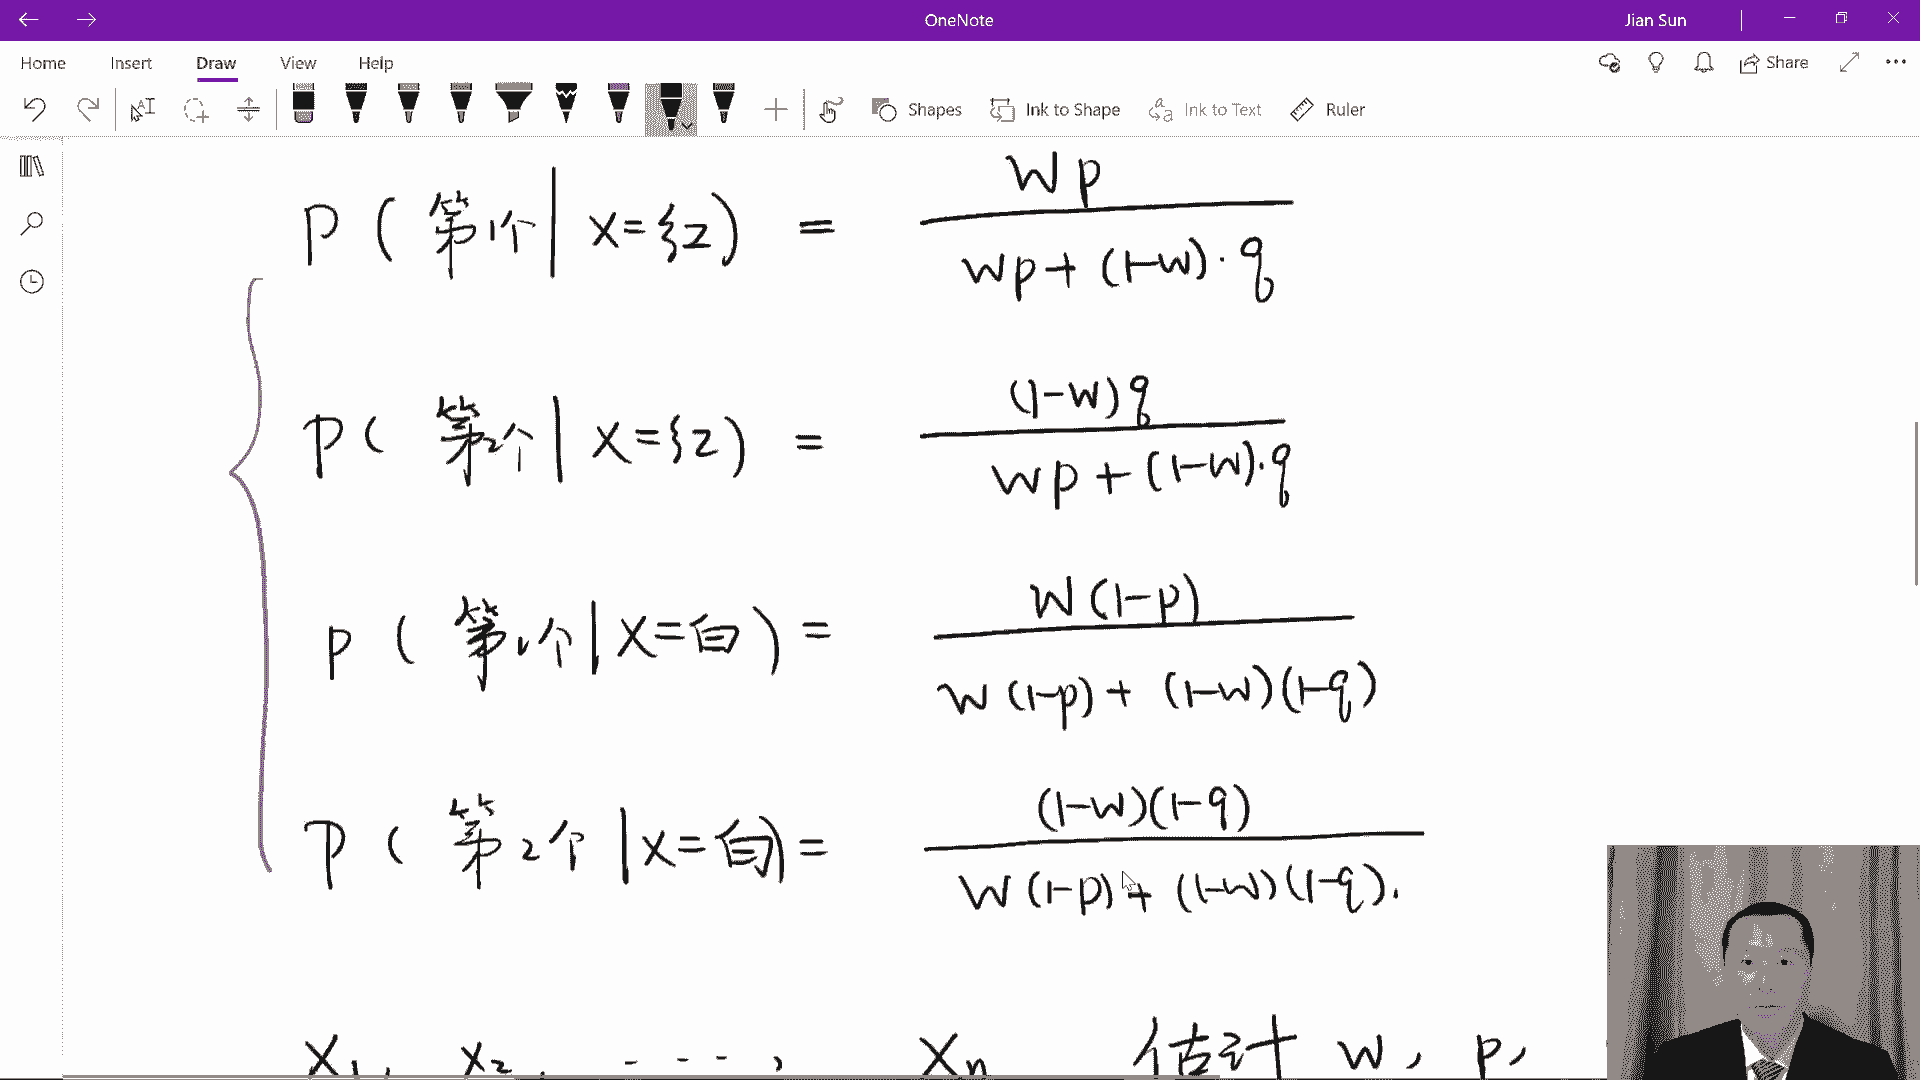 OneNote
Jian Sun
Home Insert Draw View Help
Share
Shapes Ink to Shape Ink to Text Ruler
P(第1个|X=红) = wp / (wp+(1-w)·q)
P(第2个|X=红) = (1-w)q / (wp+(1-w)·q)
P(第1个|X=白) = w(1-p) / (w(1-p)+(1-w)(1-q))
P(第2个|X=白) = (1-w)(1-q) / (w(1-p)+(1-w)(1-q)).
X₁, X₂, ----, Xn 估计 w, p,